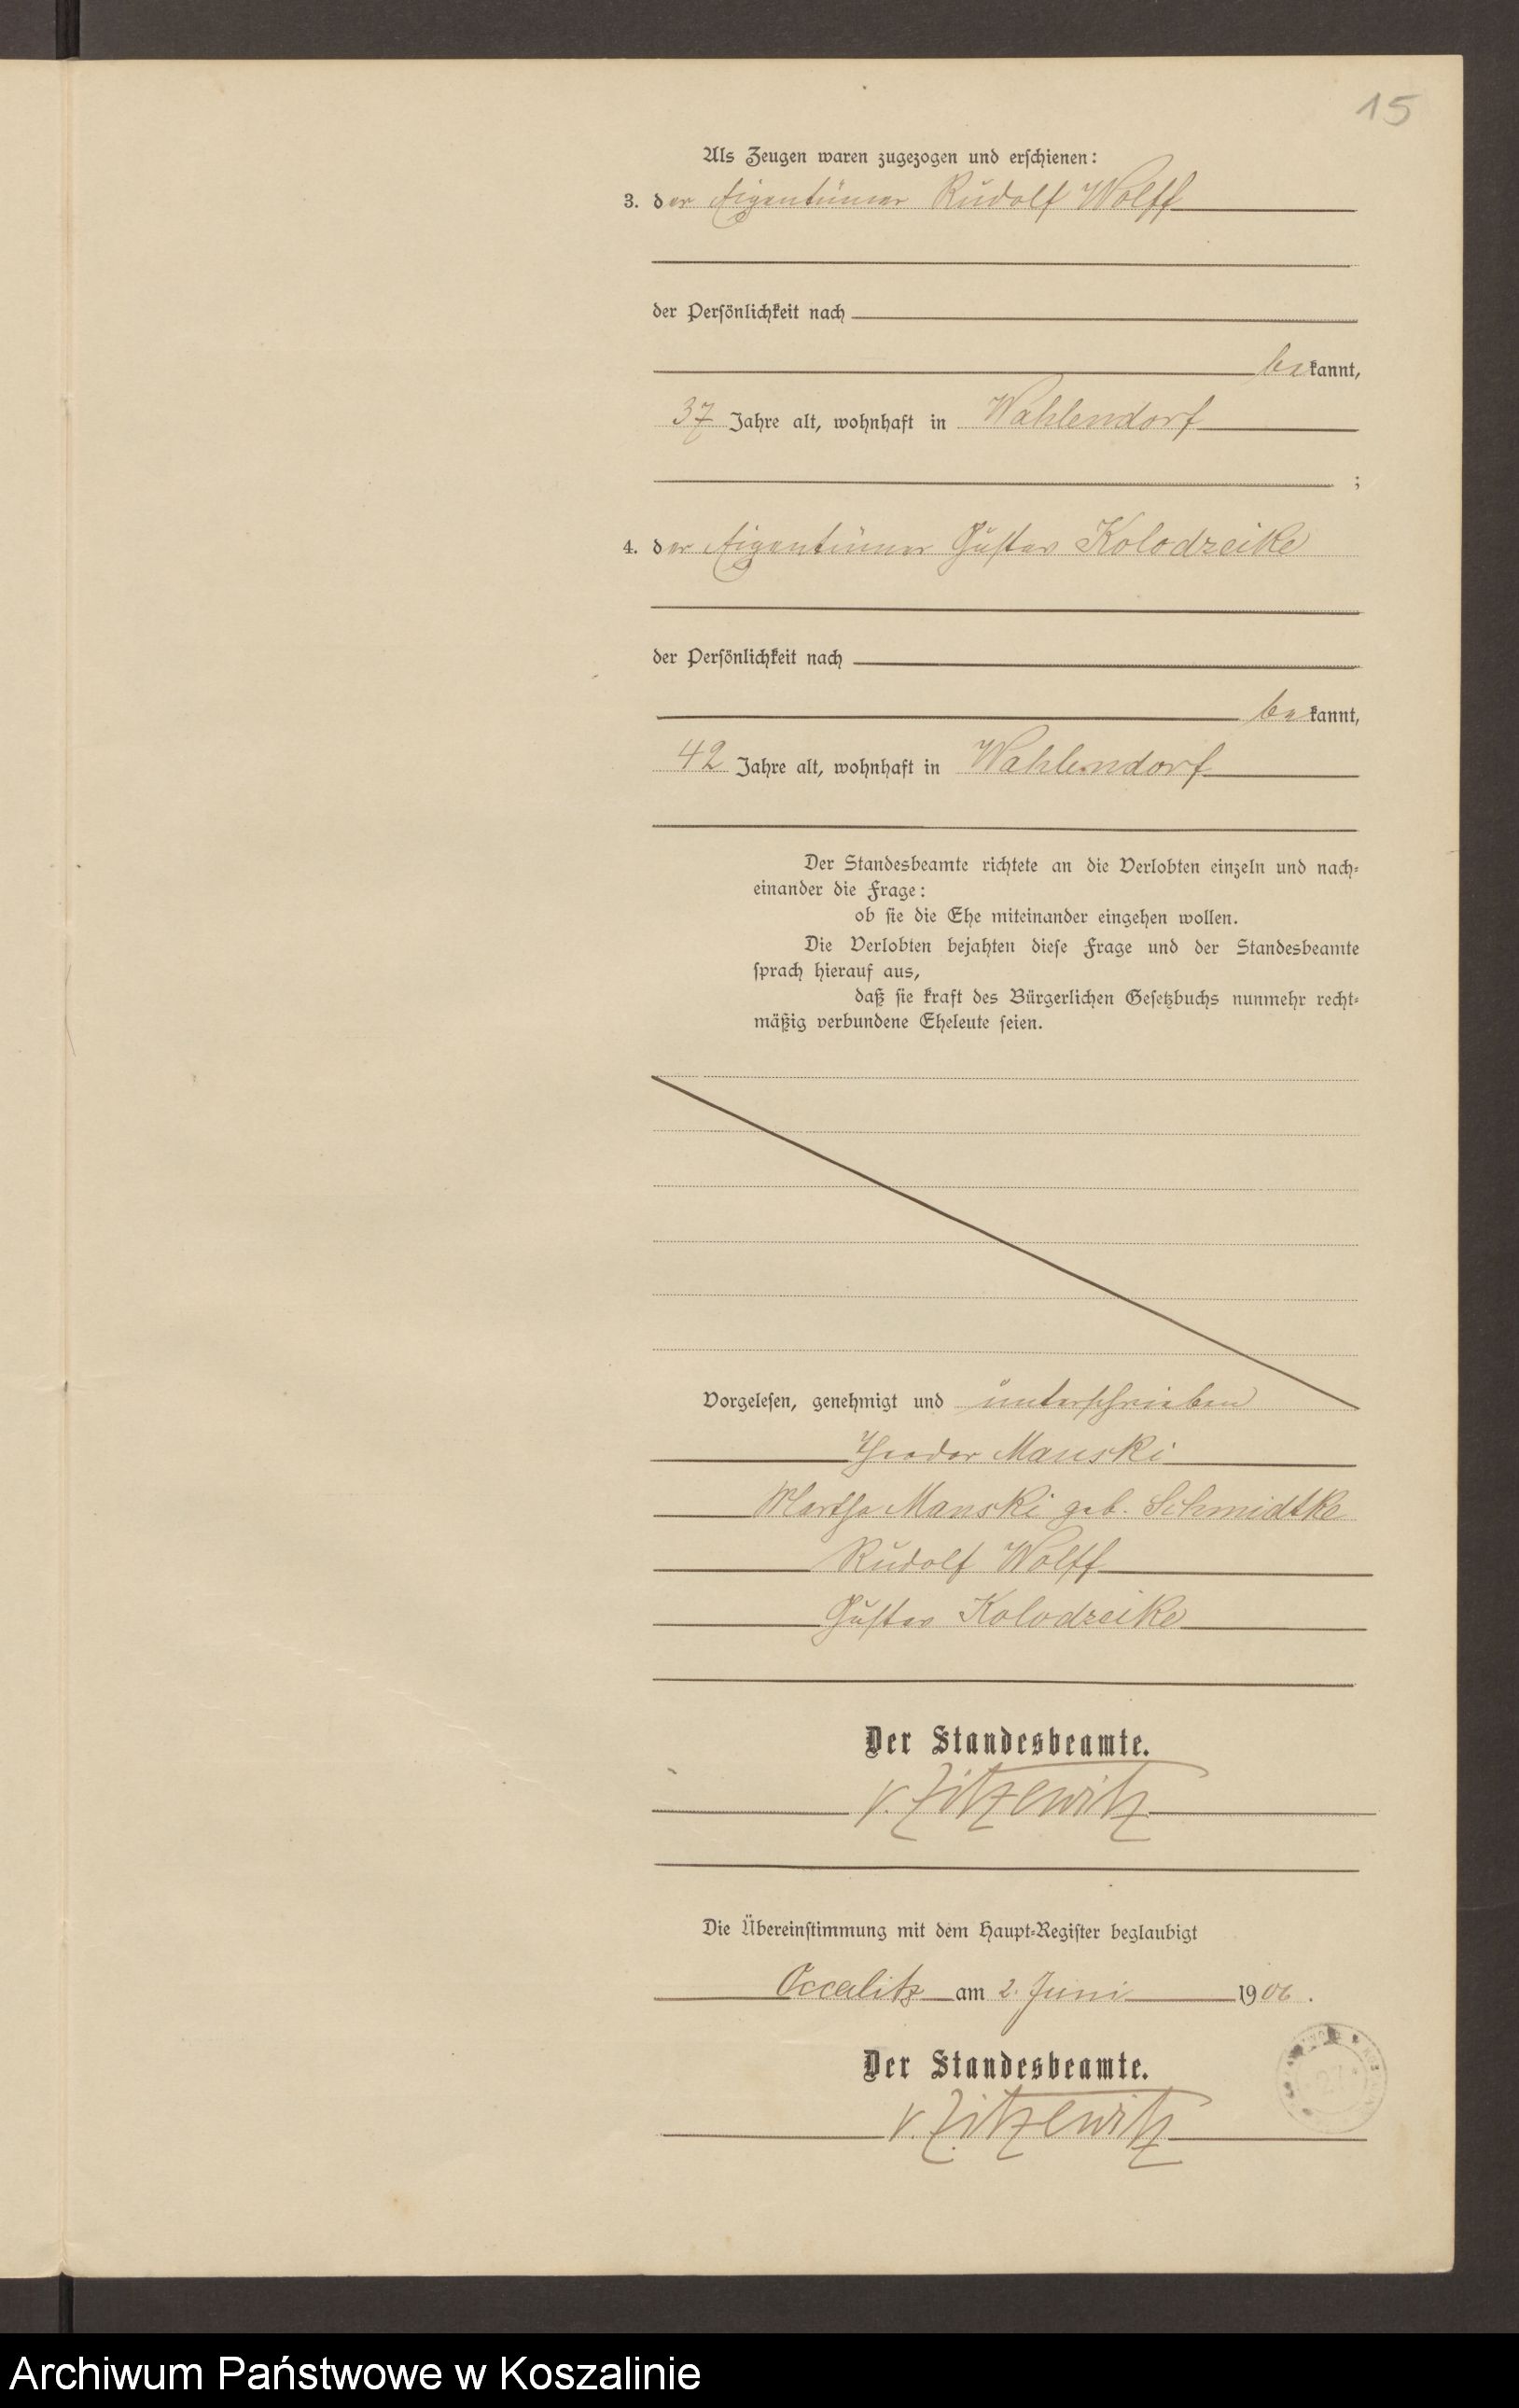 15
Als Zeugen waren zugezogen und erschienen:
3. der Eigentümer Rudolf Wolff
der Persönlichkeit nach
bekannt,
37 Jahre alt, wohnhaft in Wahlendorf
;
4. der Eigentümer Gustav Kolodzeike
der Persönlichkeit nach
bekannt,
42 Jahre alt, wohnhaft in Wahlendorf
Der Standesbeamte richtete an die Verlobten einzeln und nach-
einander die Frage:
ob sie die Ehe miteinander eingehen wollen.
Die Verlobten bejahten diese Frage und der Standesbeamte
sprach hierauf aus,
daß sie kraft des Bürgerlichen Gesetzbuchs nunmehr recht-
mäßig verbundene Eheleute seien.
Vorgelesen, genehmigt und unterschrieben
Theodor Manski
Martha Manski geb. Schmidtke
Rudolf Wolff
Gustav Kolodzeike
Der Standesbeamte.
v. Zitzewitz
Die Übereinstimmung mit dem Haupt-Register beglaubigt
Occalitz am 2. Juni 1906.
Der Standesbeamte.
v. Zitzewitz
Archiwum Państwowe w Koszalinie